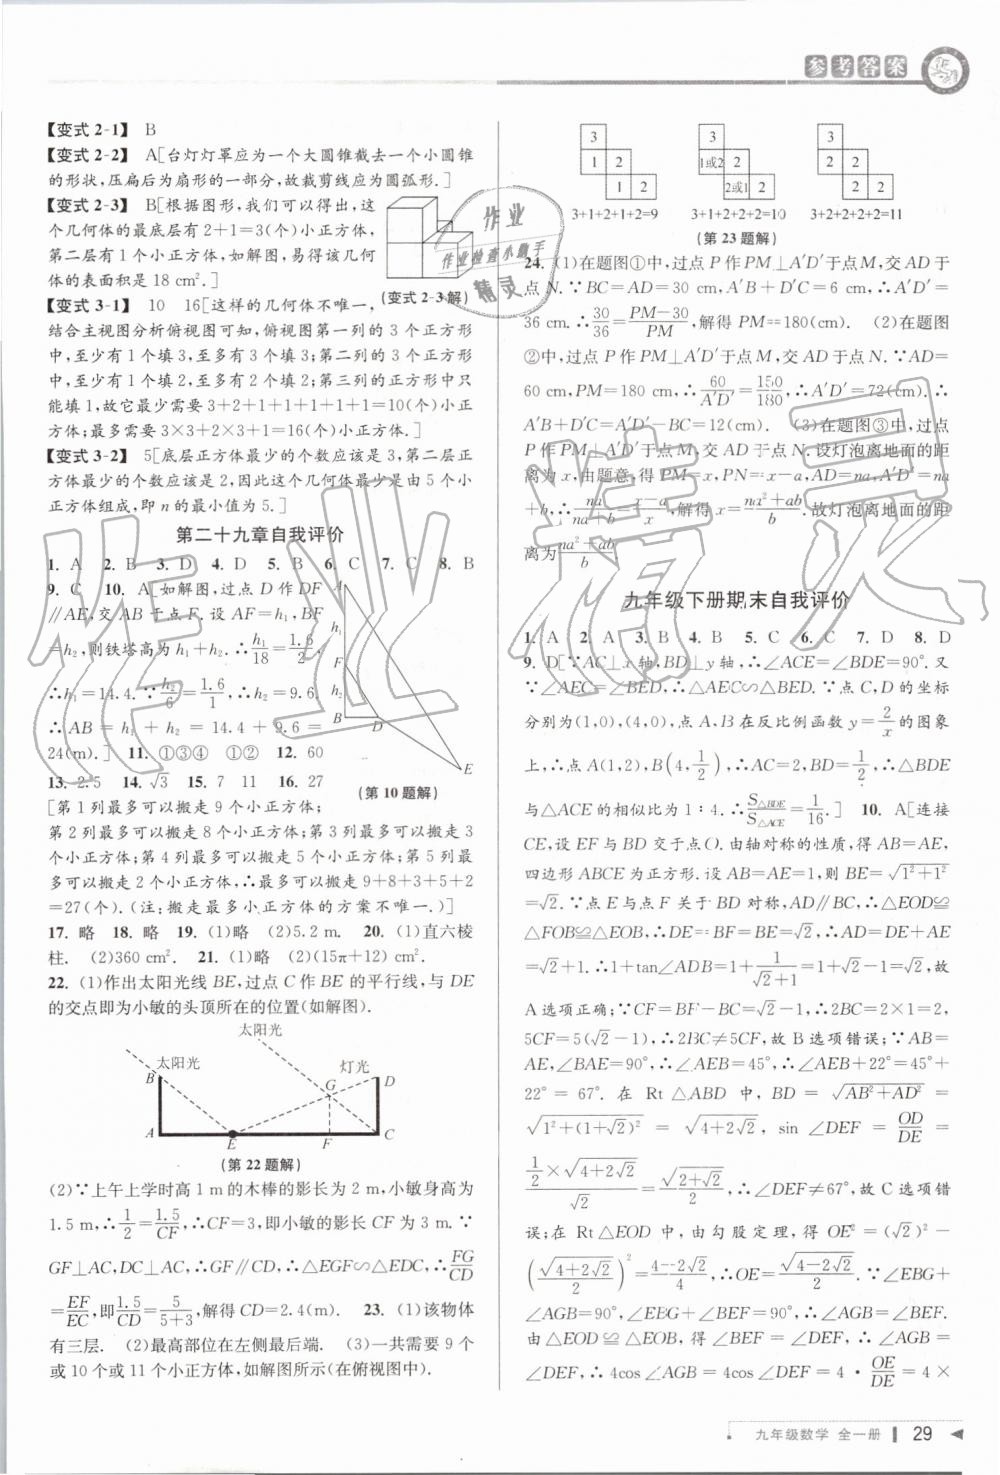 参考答案
【变式 2-1】 B
【变式 2-2】 A[台灯灯罩应为一个大圆锥截去一个小圆锥
的形状,压扁后为扇形的一部分,故裁剪线应为圆弧形.]
【变式 2-3】 B[根据图形,我们可以得出,这
个几何体的最底层有 2+1=3(个)小正方体,
第二层有 1 个小正方体,如解图,易得该几何
体的表面积是 18 cm².]
(变式 2-3 解)
【变式 3-1】 10 16[这样的几何体不唯一,
结合主视图分析俯视图可知,俯视图第一列的 3 个正方形
中,至少有 1 个填 3,至多有 3 个填 3;第二列的 3 个正方形
中,至少有 1 个填 2,至多有 2 个填 2;第三列的正方形中只
能填 1,故它最少需要 3+2+1+1+1+1+1=10(个)小正
方体;最多需要 3×3+2×3+1=16(个)小正方体.]
【变式 3-2】 5[底层正方体最少的个数应该是 3,第二层正
方体最少的个数应该是 2,因此这个几何体最少是由 5 个小
正方体组成,即 n 的最小值为 5.]
第二十九章自我评价
1. A 2. B 3. D 4. D 5. B 6. C 7. C 8. B
9. C 10. A[如解图,过点 D 作 DF
∥AE,交 AB 于点 F. 设 AF=h₁,BF
=h₂,则铁塔高为 h₁+h₂. ∴h₁/18=1.6/2,
∴h₁=14.4. ∵h₂/6=1.6/1,∴h₂=9.6.
∴AB=h₁+h₂=14.4+9.6=
24(m).] 11. ①③④ ①② 12. 60
13. 2.5 14. √3 15. 7 11 16. 27
A
h₁
F
h₂
B D
E
(第 10 题解)
[第 1 列最多可以搬走 9 个小正方体;
第 2 列最多可以搬走 8 个小正方体;第 3 列最多可以搬走 3
个小正方体;第 4 列最多可以搬走 5 个小正方体;第 5 列最
多可以搬走 2 个小正方体,∴最多可以搬走 9+8+3+5+2
=27(个).(注:搬走最多小正方体的方案不唯一.)]
17. 略 18. 略 19. (1)略 (2)5.2 m. 20. (1)直六棱
柱. (2)360 cm². 21. (1)略 (2)(15π+12) cm².
22. (1)作出太阳光线 BE,过点 C 作 BE 的平行线,与 DE
的交点即为小敏的头顶所在的位置(如解图).
太阳光
太阳光 灯光
B G D
A E F C
(第 22 题解)
(2)∵上午上学时高 1 m 的木棒的影长为 2 m,小敏身高为
1.5 m,∴1/2=1.5/CF,∴CF=3,即小敏的影长 CF 为 3 m. ∵
GF⊥AC,DC⊥AC,∴GF∥CD,∴△EGF∽△EDC,∴FG/CD
=EF/EC,即1.5/CD=5/(5+3),解得 CD=2.4(m). 23. (1)该物体
有三层. (2)最高部位在左侧最后端. (3)一共需要 9 个
或 10 个或 11 个小正方体,如解图所示(在俯视图中).
3 3 3
1 2 1或2 2 2 2
1 2 2或1 2 2 2
3+1+2+1+2=9 3+1+2+2+2=10 3+2+2+2+2=11
(第 23 题解)
24. (1)在题图①中,过点 P 作 PM⊥A′D′于点 M,交 AD 于
点 N. ∵BC=AD=30 cm,A′B+D′C=6 cm,∴A′D′=
36 cm. ∴30/36=(PM-30)/PM,解得 PM=180(cm). (2)在题图
②中,过点 P 作 PM⊥A′D′于点 M,交 AD 于点 N. ∵AD=
60 cm,PM=180 cm,∴60/A′D′=150/180,∴A′D′=72(cm). ∴
A′B+D′C=A′D′-BC=12(cm). (3)在题图③中,过点
P 作 PM⊥A′D′于点 M,交 AD 于点 N. 设灯泡离地面的距
离为 x,由题意,得 PM=x,PN=x-a,AD=na,A′D′=na
+b,∴na/(na+b)=(x-a)/x,解得 x=(na²+ab)/b. 故灯泡离地面的距
离为(na²+ab)/b.
九年级下册期末自我评价
1. A 2. A 3. B 4. B 5. C 6. C 7. D 8. D
9. D[∵AC⊥x 轴,BD⊥y 轴,∴∠ACE=∠BDE=90°. 又
∵∠AEC=∠BED,∴△AEC∽△BED. ∵点 C,D 的坐标
分别为(1,0),(4,0),点 A,B 在反比例函数 y=2/x 的图象
上,∴点 A(1,2),B(4,1/2),∴AC=2,BD=1/2,∴△BDE
与△ACE 的相似比为 1∶4. ∴S△BDE/S△ACE=1/16.] 10. A[连接
CE,设 EF 与 BD 交于点 O. 由轴对称的性质,得 AB=AE,
四边形 ABCE 为正方形. 设 AB=AE=1,则 BE=√(1²+1²)
=√2. ∵点 E 与点 F 关于 BD 对称,AD∥BC,∴△EOD≌
△FOB≌△EOB,∴DE=BF=BE=√2,∴AD=DE+AE
=√2+1. ∴1+tan∠ADB=1+1/(√2+1)=1+√2-1=√2,故
A 选项正确;∵CF=BF-BC=√2-1,∴2BC=2×1=2,
5CF=5(√2-1),∴2BC≠5CF,故 B 选项错误;∵AB=
AE,∠BAE=90°,∴∠AEB=45°,∴∠AEB+22°=45°+
22°=67°. 在 Rt△ABD 中,BD=√(AB²+AD²)=
√(1²+(1+√2)²)=√(4+2√2),sin∠DEF=OD/DE=
(1/2×√(4+2√2))/√2=√(2+√2)/2,∴∠DEF≠67°,故 C 选项错
误;在 Rt△EOD 中,由勾股定理,得 OE²=(√2)²-
(√(4+2√2)/2)²=(4-2√2)/4,∴OE=√(4-2√2)/2. ∵∠EBG+
∠AGB=90°,∠EBG+∠BEF=90°,∴∠AGB=∠BEF.
由△EOD≌△EOB,得∠BEF=∠DEF,∴∠AGB=
∠DEF,∴4cos∠AGB=4cos∠DEF=4·OE/DE=4×
九年级数学 全一册 29
作业
作业检查小助手
精灵
作业精灵